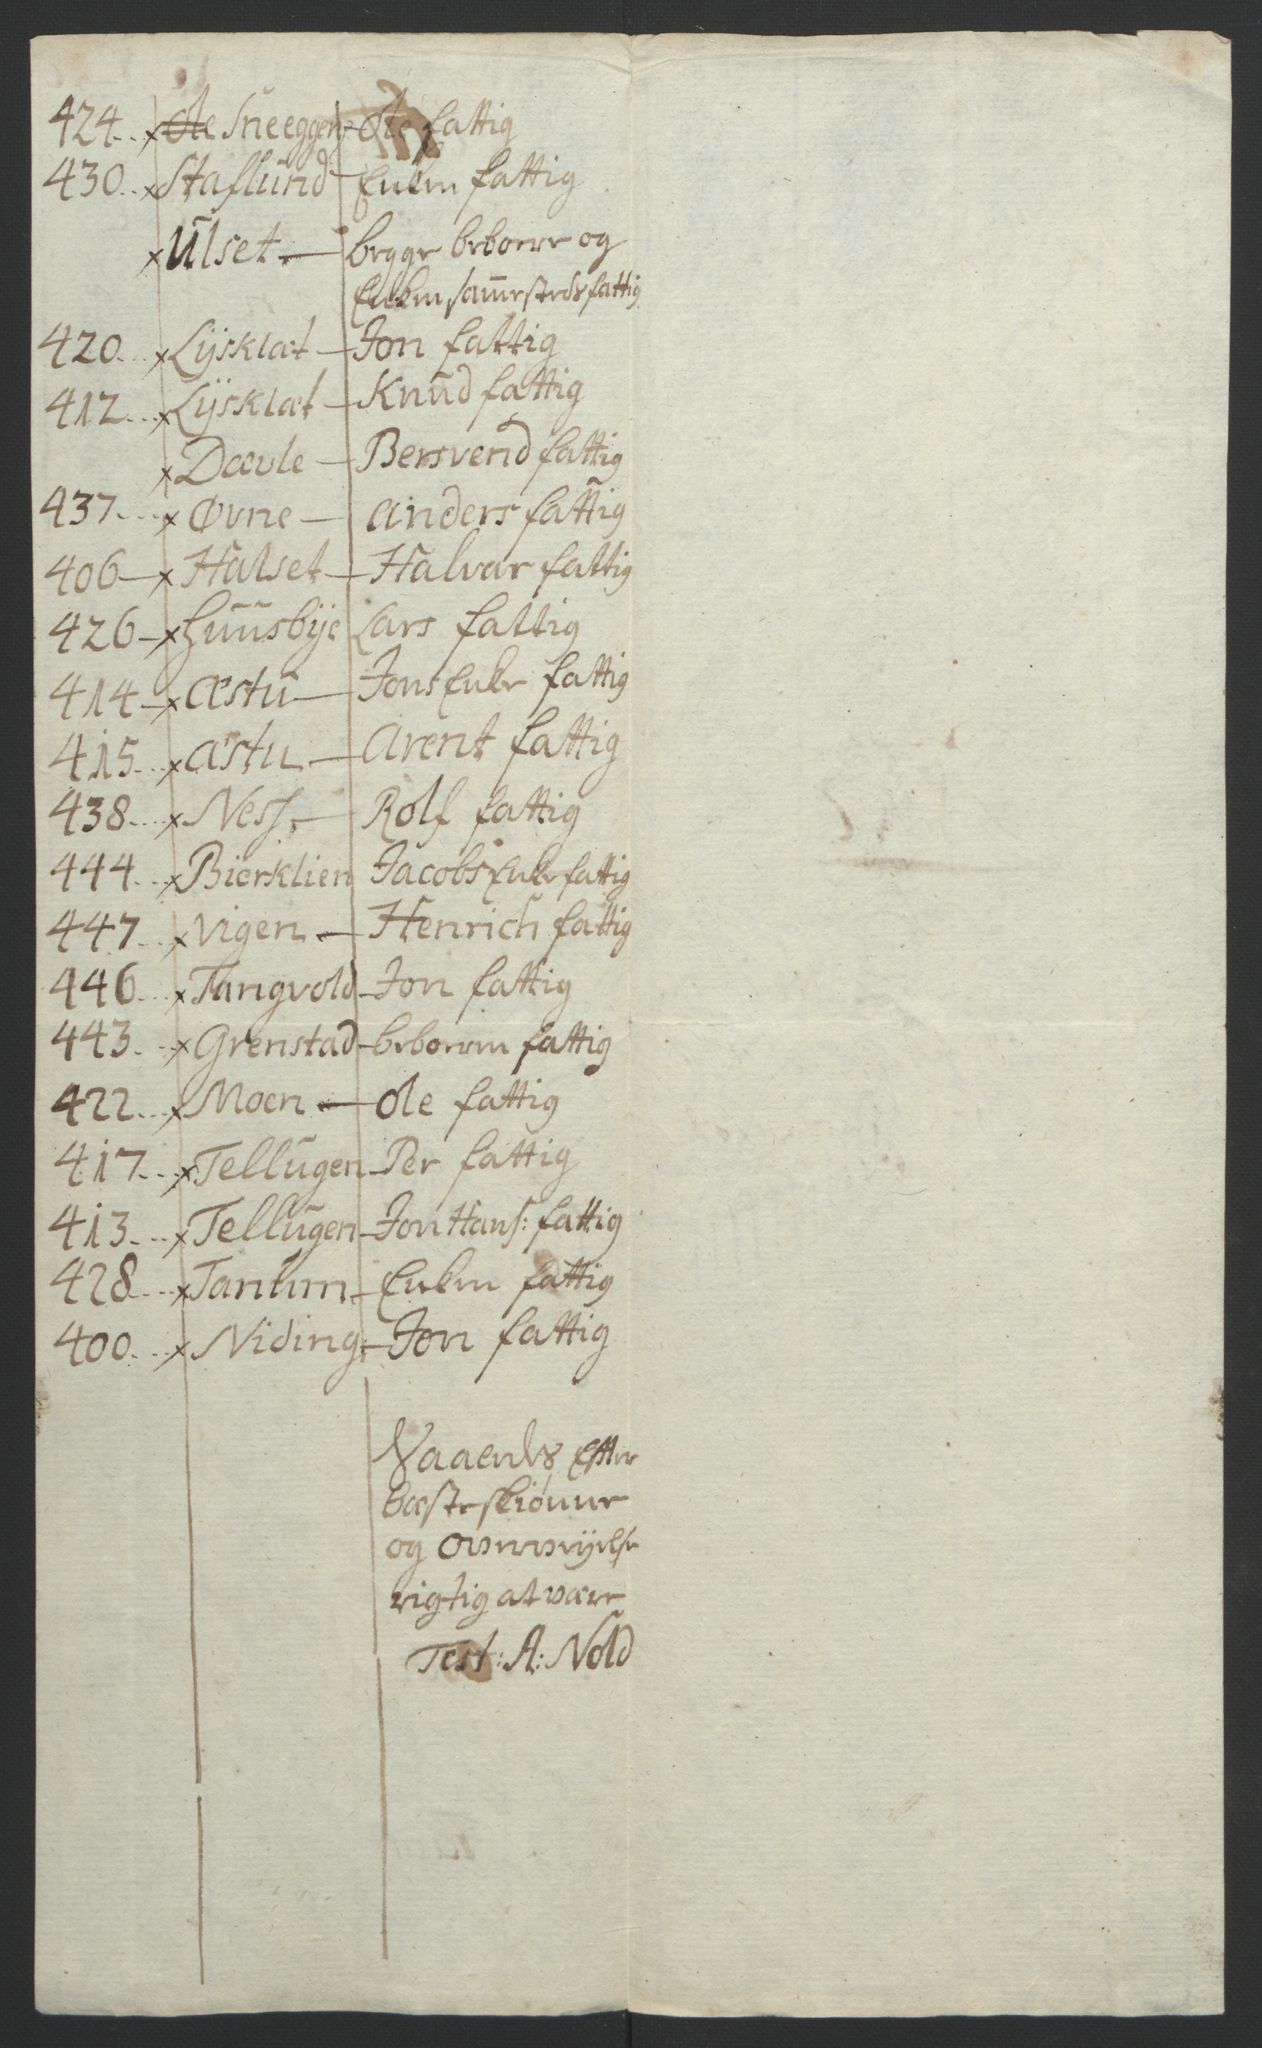 424... x ~~Ole~~ Sneeggen - Ole fattig
430... x Staflund - Enken fattig
x Ulset - begge beboere og
Enken sammesteds fattig
420... x Lysklæt - Jon fattig
412... x Lysklæt - Knud fattig
x Dævle - Bersvend fattig
437... x Øvne - Anders fattig
406 - x Halset - Halvar fattig
426 - x Huusbye Lars fattig
414 - x Æstu - Jons Enke fattig
415... x Æstu - Arent fattig
438... x Ness - Rolf fattig
444... x Bierklien Jacobs Enke fattig
447... x Vigen - Henrich fattig
446... x Tangvold - Jon fattig
443... x Grenstad - beboeren fattig
422... x Moen - Ole fattig
417... x Tellugen - Per fattig
413... x Tellugen - Jon Hans: fattig
428... x Tanum - Enken fattig
400... x Niding: - Jon fattig
efter
bæste skiønne
og
rigtig at være
Test: A: Nold